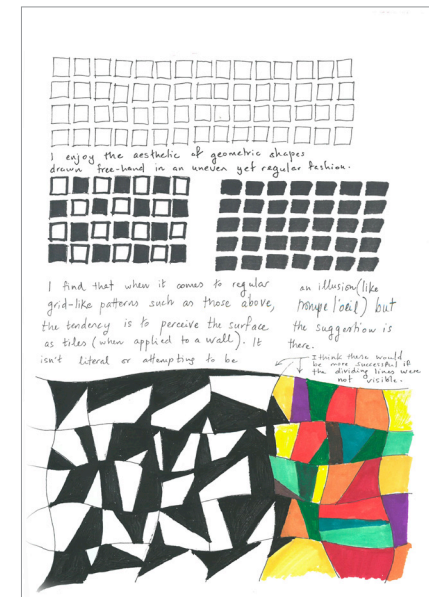 I enjoy the aesthetic of geometric shapes
drawn free-hand in an uneven yet regular fashion.
I find that when it comes to regular
grid-like patterns such as those above,
the tendency is to perceive the surface
as tiles (when applied to a wall). It
isn't literal or attempting to be
an illusion (like
trompe l'oeil) but
the suggestion is
there.
I think these would
be more successful if
the dividing lines were
not visible.